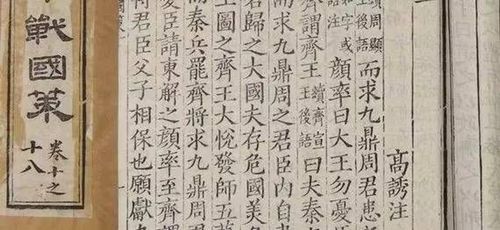 高誘注
續周顯王後語 而求九鼎周君患
顏率曰大王勿憂
齊謂齊王續齊宣王後語曰夫秦
而求九鼎周之君臣內自
君歸之大國夫存危國美
王圖之齊王大悅發師五
而秦兵罷齊將求九鼎周
臣請東解之顏率至齊
君臣父子相保也願獻
戰國策
卷十之
十八